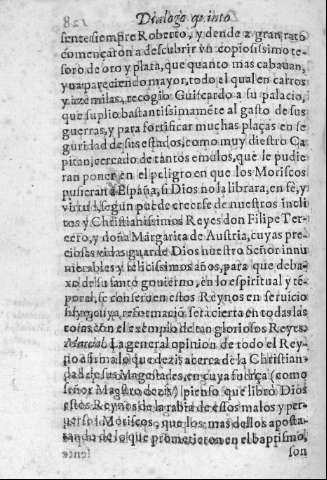 Dialogo quinto
sente siempre Roberto, y dende a gran rato
començaron a descubrir vn copiosissimo te-
soro de oro y plata, que quanto mas cabauan,
yua pareciendo mayor, todo el qual en carros
y azemilas, recogio Guiscardo a su palacio,
que suplio bastantissimamẽte al gasto de sus
guerras, y para fortificar muchas plaças en se
guridad de sus estados, como muy diestro Ca
pitan, cercado de tantos emulos, que le pudie
ran poner en el peligro en que los Moriscos
pusieran a España, si Dios no la librara, en fè, y
virtud, segun puede creerse de nuestros incli
tos y Christianissimos Reyes don Filipe Ter-
cero, y doña Margarita de Austria, cuyas pre-
ciosas vidas guarde Dios nuestro Señor innu
merables y felicissimos años, para que deba-
xo de su santo gouierno, en lo espiritual y tẽ-
poral, se conseruen estos Reynos en seruicio
cierta en todas las
cosas con el exemplo de tan gloriosos Reyes.
Marcial. La general opinion de todo el Rey-
no afirma lo que dezis acerca de la Christian-
dad de sus Magestades, en cuya fuerça (como
señor Maestro dezis) pienso que librò Dios
estos Reynos de la rabia de essos malos y per-
Moriscos, que los mas dellos aposta-
tando de lo que prometieron en el baptismo,
son